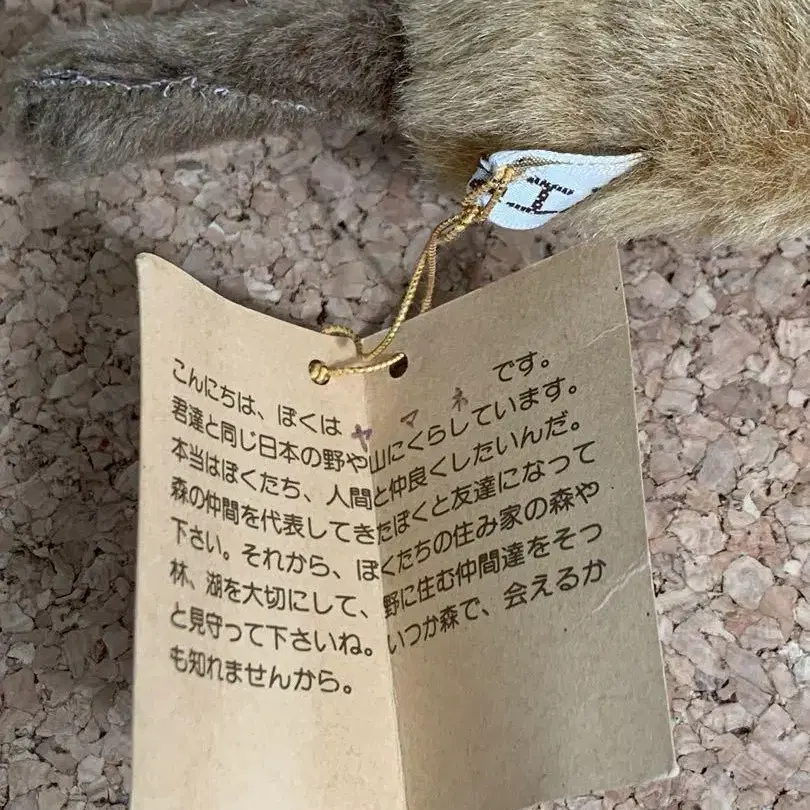 こんにちは、ぼくは ヤマネ です。
君達と同じ日本の野や山にくらしています。
本当はぼくたち、人間と仲良くしたいんだ。
森の仲間を代表してきたぼくと友達になって
下さい。それから、ぼくたちの住み家の森や
林、湖を大切にして、野に住む仲間達をそっ
と見守って下さいね。いつか森で、会えるか
も知れませんから。